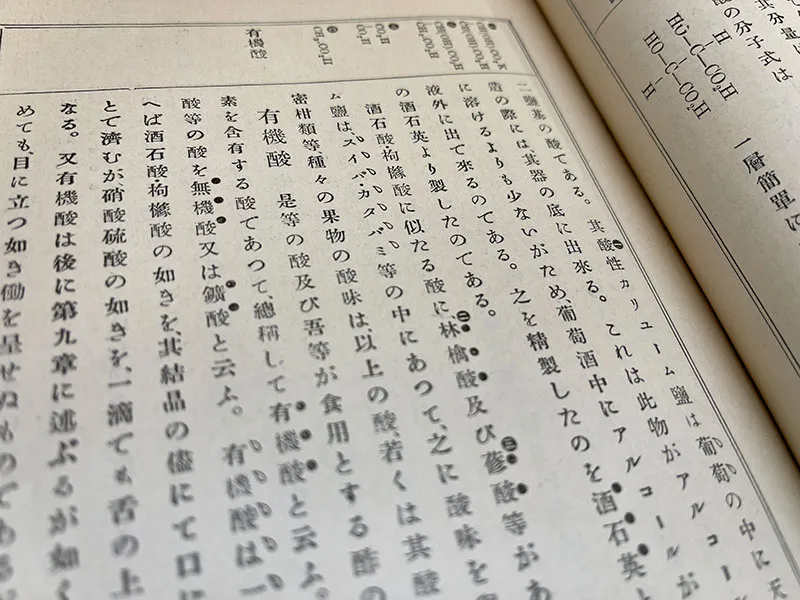 其分量に
酸の分子式は
H
HO—C—CO₂H
HO—C—CO₂H
H
一層簡單に
(一)
CHOHCO₂K
CHOHCO₂H
(二)
CHOHCO₂H
CH₂CO₂H
CO₂H
CO₂H
CH₂CO₂H
有機酸
二鹽基の酸である。其酸性カリユーム鹽は葡萄の中に天
造の際には、其器の底に出來る。これは此物がアルコー
に溶けるよりも少ないがため、葡萄酒中にアルコールが
液外に出て來るのである。之を精製したのを酒石英と
の酒石英より製したのである。
酒石酸枸櫞酸に似たる酸に、林檎酸及び蓚酸等があ
ム鹽は、スイバ・カタバミ等の中にあつて、之に酸味を
密柑類等種々の果物の酸味は、以上の酸若くは其酸
有機酸 是等の酸及び吾等が食用とする酢の
素を含有する酸であつて、總稱して有機酸と云ふ。
酸等の酸を無機酸又は鑛酸と云ふ。有機酸は一
へば酒石酸・枸櫞酸の如きを、其結晶の儘にて口に
とて濟むが硝酸硫酸の如きを、一滴でも舌の上
なる。又有機酸は後に第九章に述ぶるが如く
めても目に立つ如き働を呈せぬものである